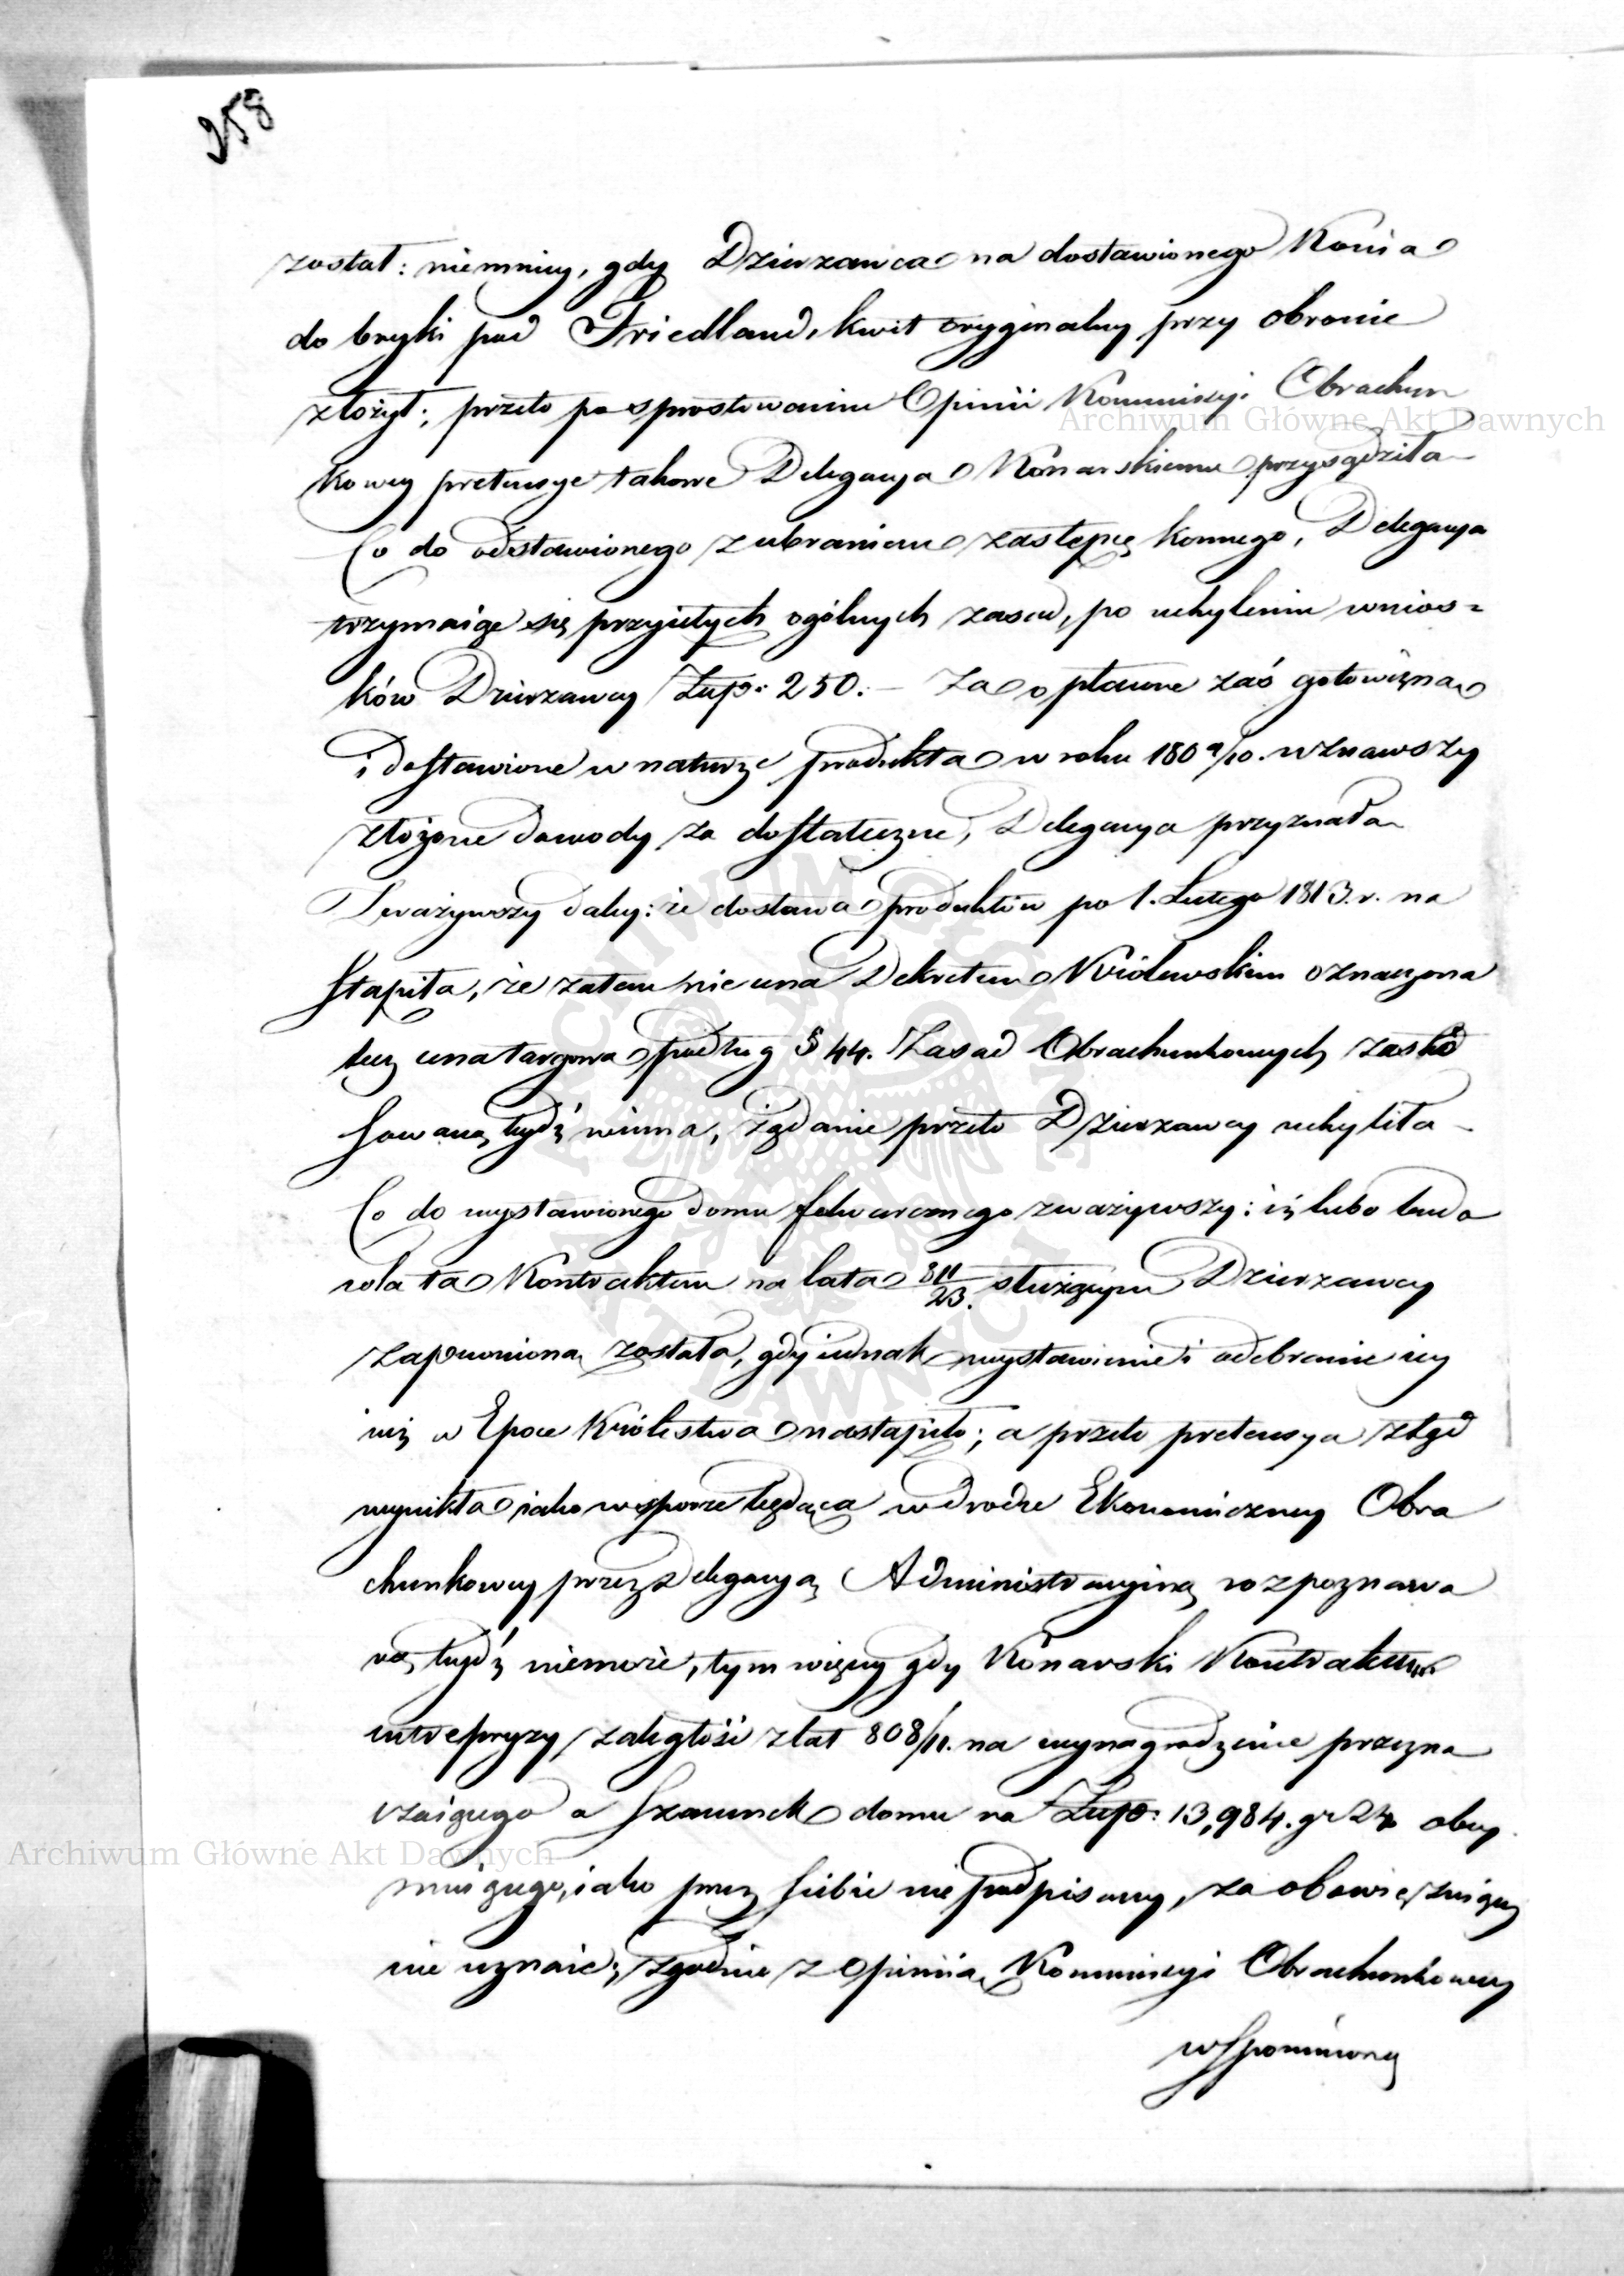 258
został: niemniey, gdy Dzierzawca na dostawionego Konia
do bryki pod Friedland, kwit oryginalny przy obronie
złożył; przeto po sprostowaniu Opinii Kommissyi Obrachun
kowey pretensye takowe Delegacya Konarskiemu przysądziła
Co do odstawionego z ubraniem zastępcę konnego, Delegacya
trzymaiąc się przyiętych ogólnych zasad, po uchyleniu wnios=
ków Dzierzawcy Złtp: 250.– Za opłacone zaś gotowizna
i dostawione w naturze produkta w roku 1809/10. uznawszy
złożone dowody za dostateczne, Delegacya przyznała
Zważywszy daley: że dostawa produktów po 1. Lutego 1813. r. na
stąpiła, że zatem nie cena Dekretem Królewskim oznaczona
lecz cena targowa podług § 44. Zasad Obrachunkowych zasto
sowaną bydź winna, żądanie przeto Dzierzawcy uchyliła
Co do wystawionego domu folwarcznego zważywszy: iż lubo budo
wla ta Kontraktem na lata 811/23. służącym Dzierzawcy
zapewnioną została, gdy iednak wystawienie i odebranie iey
iuż w Epoce Królestwa nastąpiło; a przeto pretensya ztąd
wynikła iako w sporze będąca w drodze Ekonomiczney Obra
chunkowey przez Delegacyą Administracyiną rozpoznawa
ną bydź niemoże, tym więcey gdy Konarski Kontraktu
entrepryzy zaległości z lat 808/11. na wynagrodzenie przezna
czaiącego a szacunek domu na Złtp: 13,984. gr 24 obey
muiącego, iako przez siebie nie podpisany, za obowiązuiący
nie uznaie; zgodnie z Opinią Kommissyi Obrachunkowey
wspomnioną
Archiwum Główne Akt Dawnych
Archiwum Główne Akt Dawnych
ARCHIWUM GŁÓWNE AKT DAWNYCH